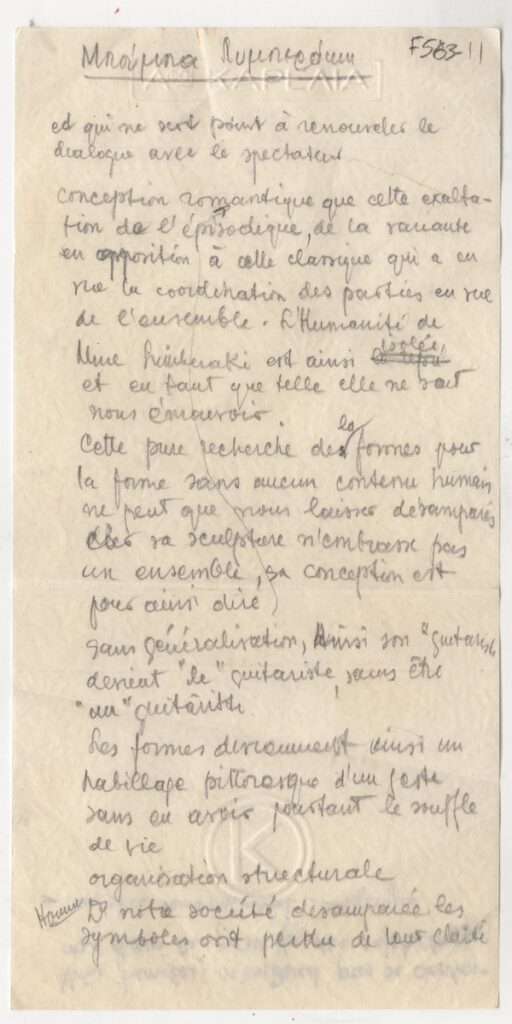 Μπούμπα Λυμπεράκη
F563-11
ΚΑΡΕΛΙΑ
et qui ne sert point à renouveler le
dialogue avec le spectateur
conception romantique que cette exalta-
tion de l'épisodique, de la variante
en opposition à celle classique qui a en
vue la coordination des parties en vue
de l'ensemble. L'Humanité de
isolée,
Mme Limberaki est ainsi
et en tant que telle elle ne sait
nous émouvoir
la
Cette pure recherche des formes pour
la forme sans aucun contenu humain
ne peut que nous laisser désemparés
car sa sculpture n'embrasse pas
un ensemble, sa conception est
pour ainsi dire
sans généralisation, Ainsi son "guitariste
devient "le" guitariste, sans être
"un" guitariste.
Les formes deviennent ainsi un
habillage pittoresque d'un geste
sans en avoir pourtant le souffle
de vie
organisation structurale
Ds notre société desamparée les
symboles ont perdu de leur clarté